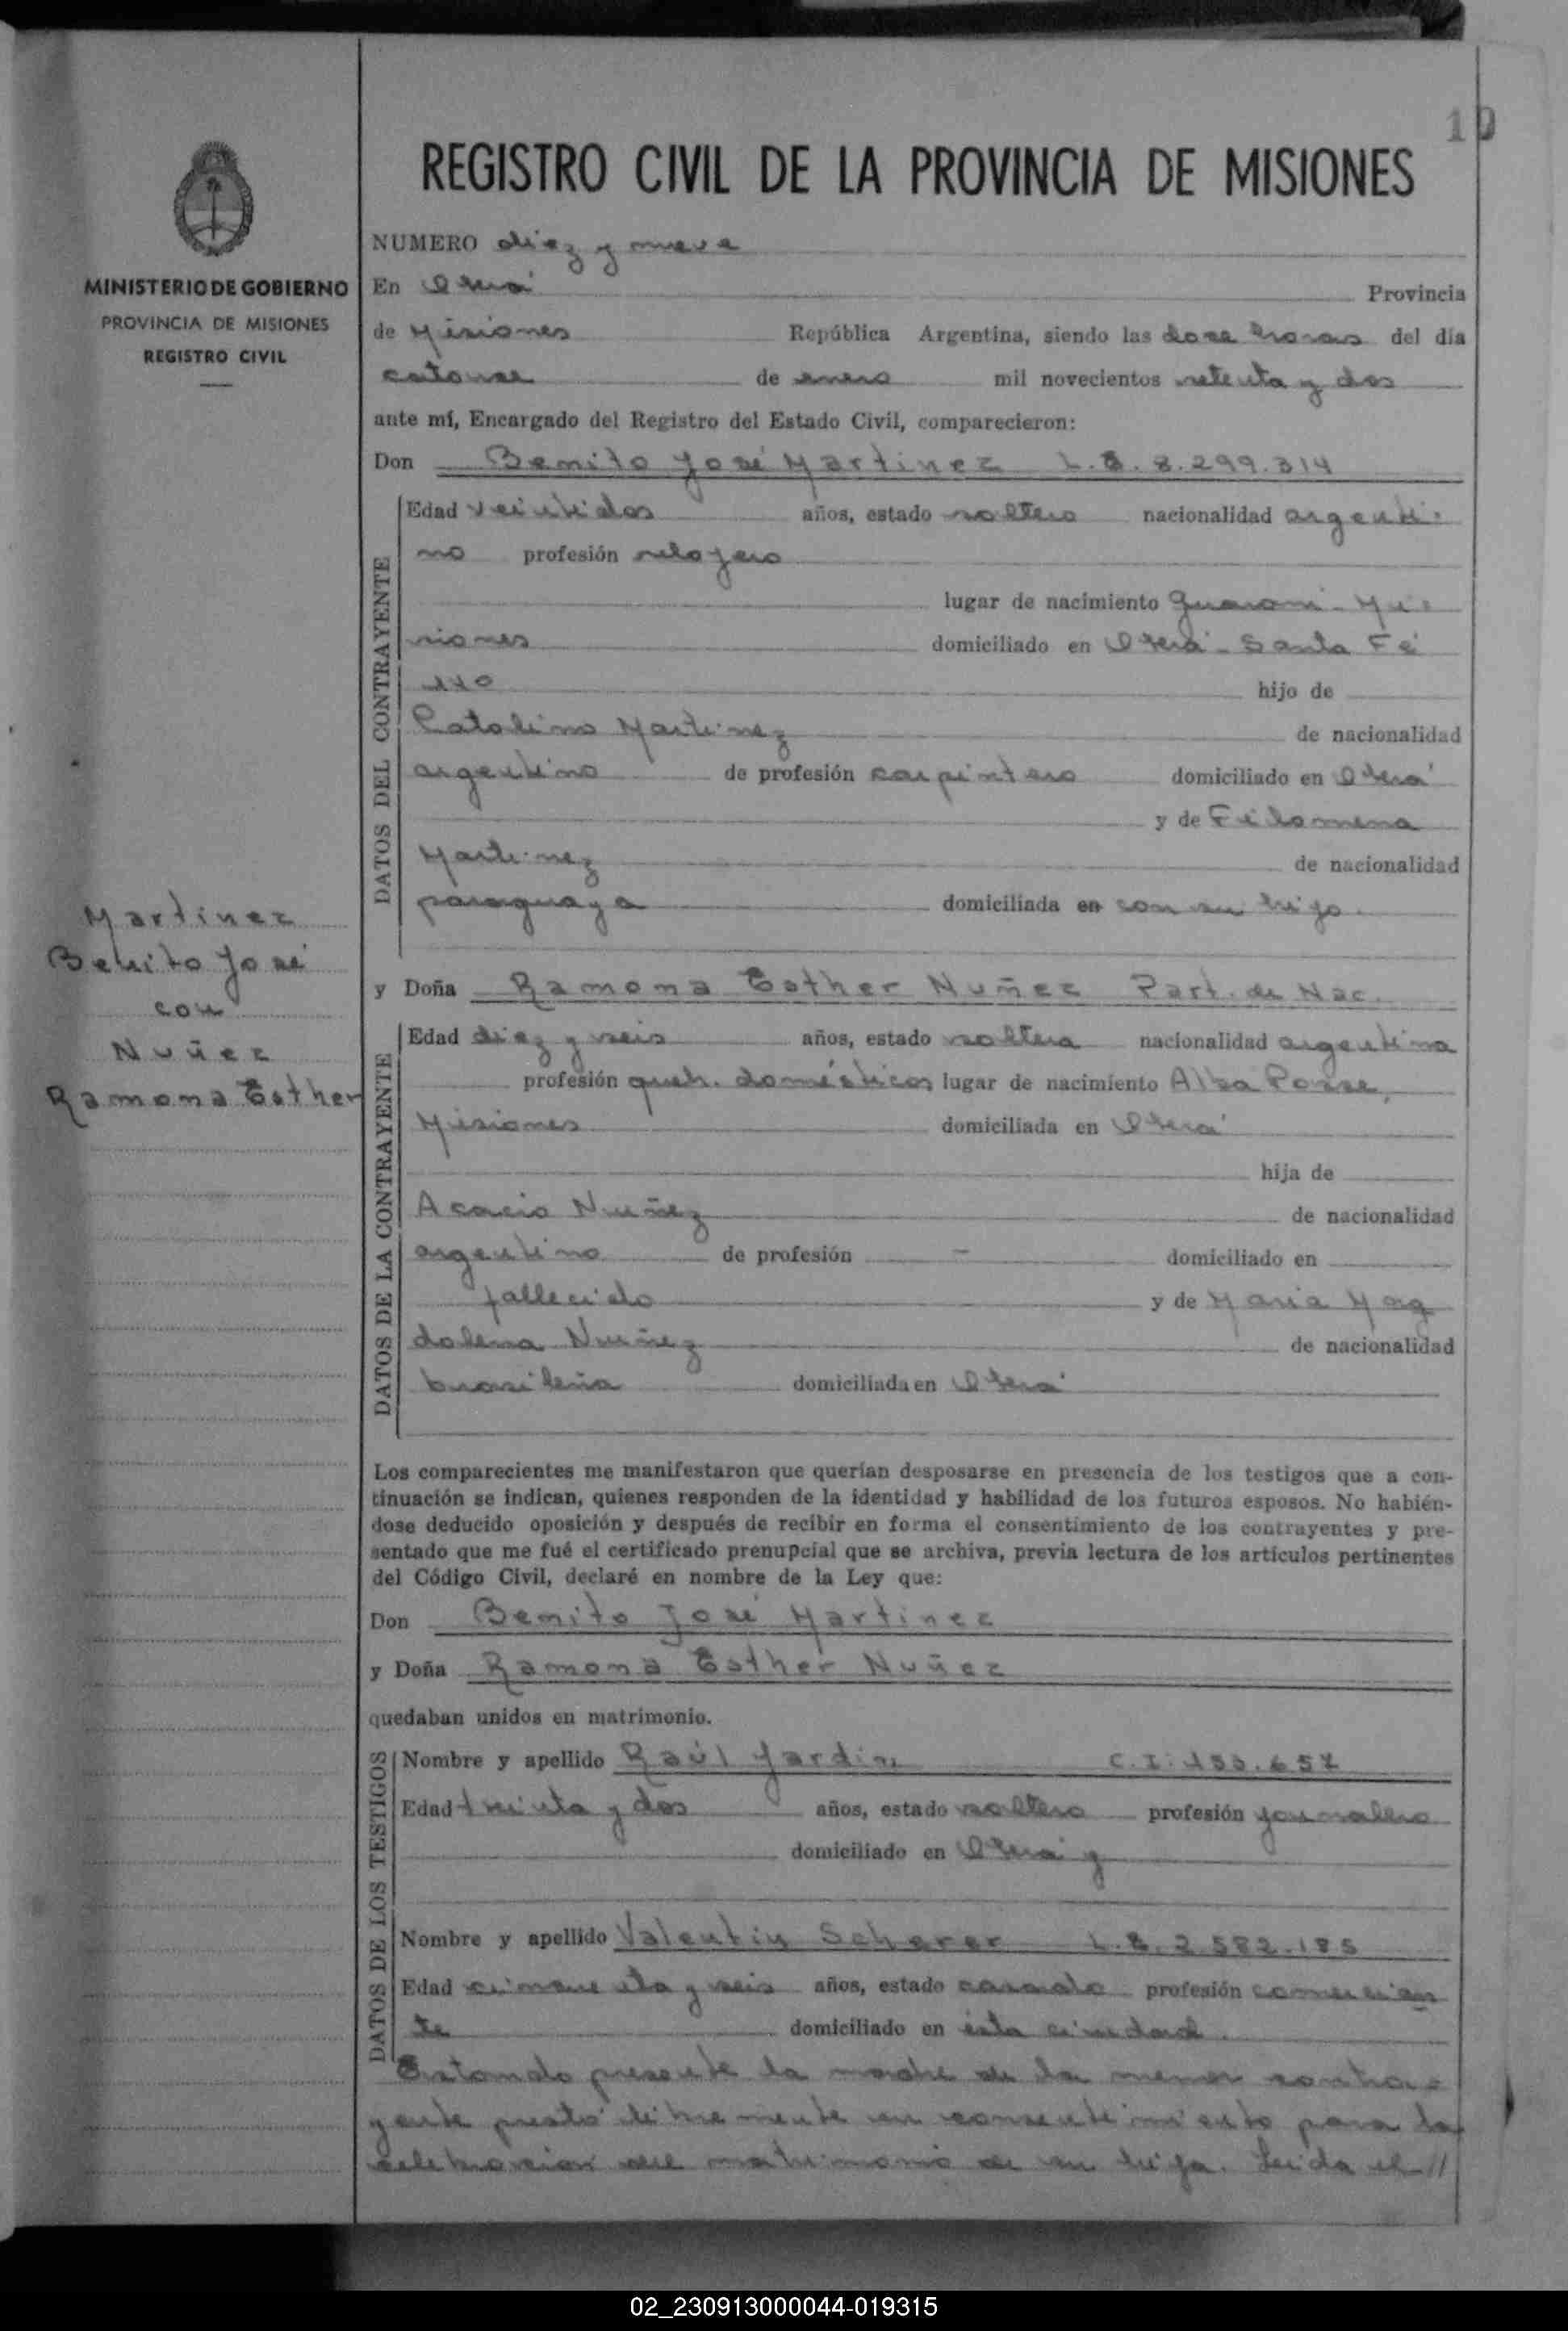 19
REGISTRO CIVIL DE LA PROVINCIA DE MISIONES
MINISTERIO DE GOBIERNO
PROVINCIA DE MISIONES
REGISTRO CIVIL
Martinez
Benito José
con
Nuñez
Ramona Esther
NUMERO diez y nueve
En Oberá Provincia
de Misiones República Argentina, siendo las doce horas del día
catorce de enero mil novecientos setenta y dos
ante mí, Encargado del Registro del Estado Civil, comparecieron:
Don Benito José Martinez L.E. 8.299.314
DATOS DEL CONTRAYENTE
Edad veintidos años, estado soltero nacionalidad argenti-
no profesión relojero
lugar de nacimiento Guaraní - Mi-
siones domiciliado en Oberá - Santa Fé
110 hijo de
Catalino Martinez de nacionalidad
argentino de profesión carpintero domiciliado en Oberá
y de Filomena
Martinez de nacionalidad
paraguaya domiciliada en con su hijo.
y Doña Ramona Esther Nuñez Part. de Nac.
DATOS DE LA CONTRAYENTE
Edad diez y seis años, estado soltera nacionalidad argentina
profesión queh. domésticos lugar de nacimiento Alba Posse,
Misiones domiciliada en Oberá
hija de
Acacio Nuñez de nacionalidad
argentino de profesión - domiciliado en
fallecido y de Maria Mag
dalena Nuñez de nacionalidad
brasileña domiciliada en Oberá
Los comparecientes me manifestaron que querían desposarse en presencia de los testigos que a con-
tinuación se indican, quienes responden de la identidad y habilidad de los futuros esposos. No habién-
dose deducido oposición y después de recibir en forma el consentimiento de los contrayentes y pre-
sentado que me fué el certificado prenupcial que se archiva, previa lectura de los artículos pertinentes
del Código Civil, declaré en nombre de la Ley que:
Don Benito José Martinez
y Doña Ramona Esther Nuñez
quedaban unidos en matrimonio.
DATOS DE LOS TESTIGOS
Nombre y apellido Raúl Jardin C.I. 153.657
Edad treinta y dos años, estado soltero profesión jornalero
domiciliado en Oberá y
Nombre y apellido Valentin Scherer L.E. 2.582.185
Edad cincuenta y seis años, estado casado profesión comercian
te domiciliado en ésta ciudad.
Estando presente la madre de la menor contra-
yente prestó libremente su consentimiento para la
celebracion del matrimonio de su hija. Leida el //
02_230913000044-019315